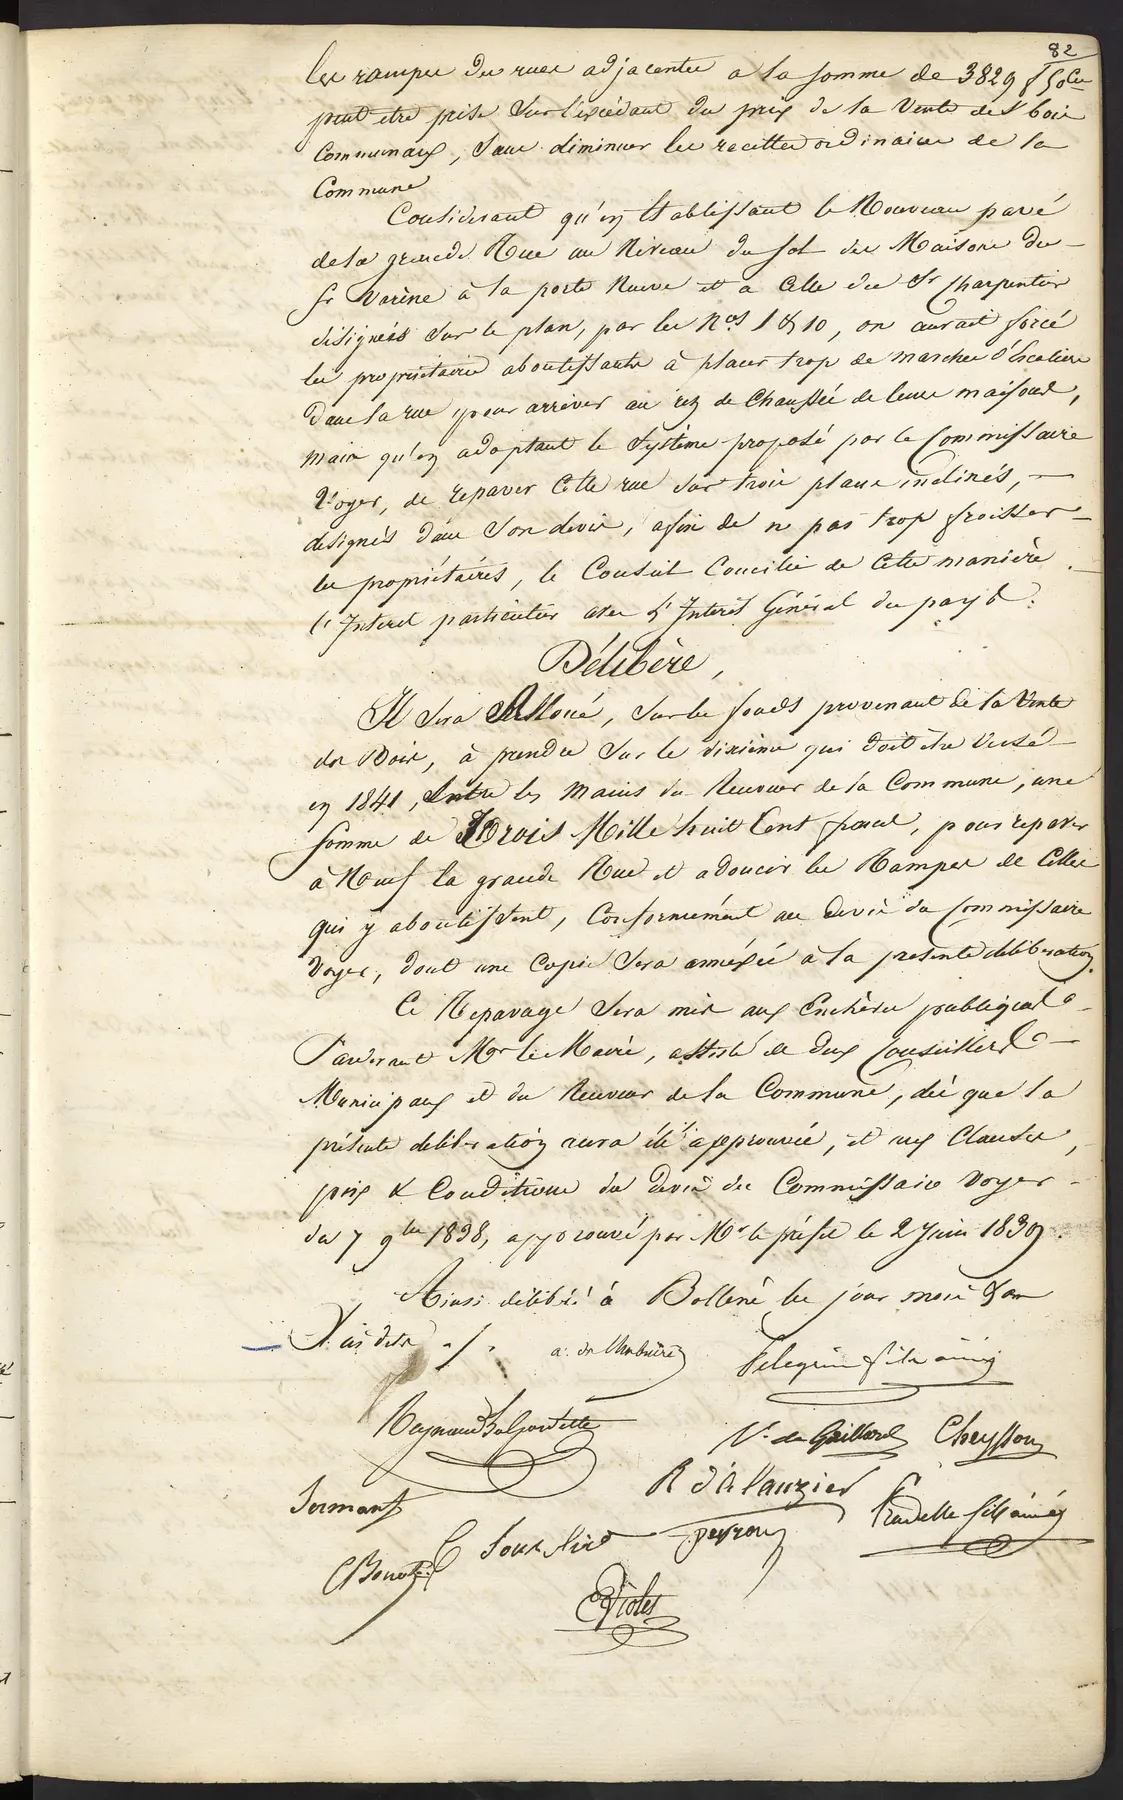 82
les rampes des rues adjacentes a la somme de 3829 f 50 ces
peut etre prise sur l'excédant du prix de la Vente des bois
Communaux, sans diminuer les recettes ordinaires de la
Commune
Considerant qu'en Etablissant le Nouveau pavé
de la grande Rue au Niveau du sol des Maisons du
Sr Varène à la porte Neuve et a Celle du Sr Charpentier
désignés sur le plan, par les Nos 1 & 10, on aurait forcé
les propriétaires aboutissants à placer trop de marches d'Escaliers
dans la rue pour arriver au rez de Chaussée de leurs maisons,
mais qu'en adoptant le Système proposé par le Commissaire
Voyer, de repaver Cette rue sur trois plans inclinés,
designés dans son devis, afin de ne pas trop froisser
les propriétaires, le Conseil Concilie de Cette manière
l'Interet particulier avec l'Interêt Général du pays.
Délibère,
Il sera Alloué, sur les fonds provenant de la Vente
des Bois, à prendre sur le dixième qui doit être Versé
en 1841, Entre les Mains du Receveur de la Commune, une
somme de Trois Mille huit Cent francs, pour repaver
à Neuf la grande Rue et adoucir les Rampes de Celles
qui y aboutissent, Conformément au devis du Commissaire
Voyer, dont une Copie sera annéxée à la presente délibération.
Ce Repavage sera mis aux Enchères publiques
Pardevant Mr le Maire, assisté de deux Conseillers
Municipaux et du Receveur de la Commune, dès que la
présente délibération aura été approuvée, et aux Clauses,
prix & Conditions du devis du Commissaire Voyer
du 7 9bre 1838, approuvé par Mr le préfet le 2 Juin 1839.
Ainsi délibéré à Bollène les jour mois & an
que dessus
Pelegrin fils ainé
V. de Gaillard Cheysson
R d'Alauzier
Pradelle fils ainé
Peyron
Violès